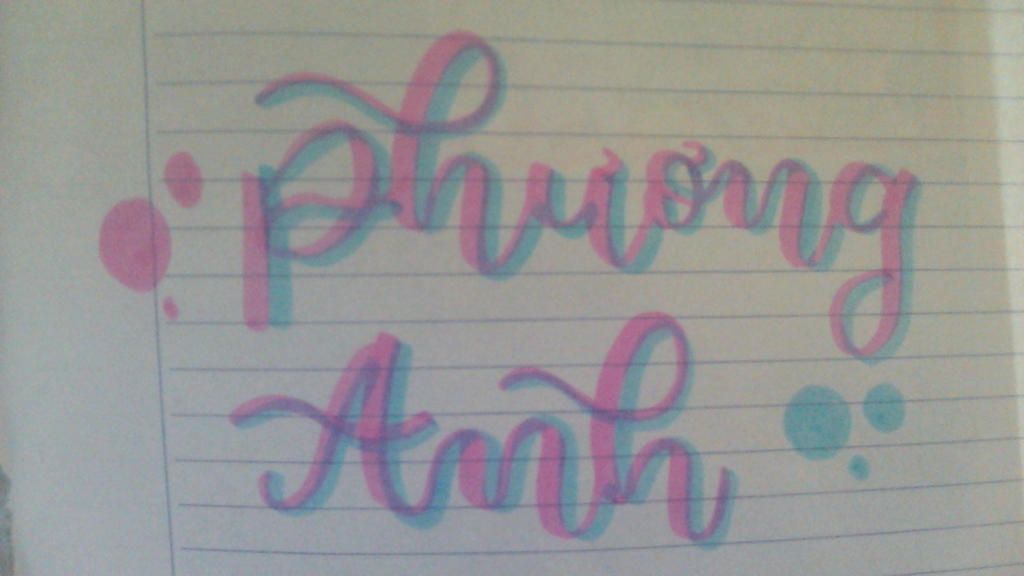 phương
Anh